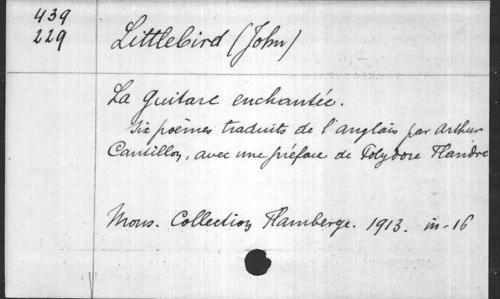 439
229
Littlebird (John)
La guitare enchantée.
Six poèmes traduits de l'anglais par Arthur
Cantillon, avec une préface de Polydore Flandre
Mons. Collection Flamberge. 1913. in-16